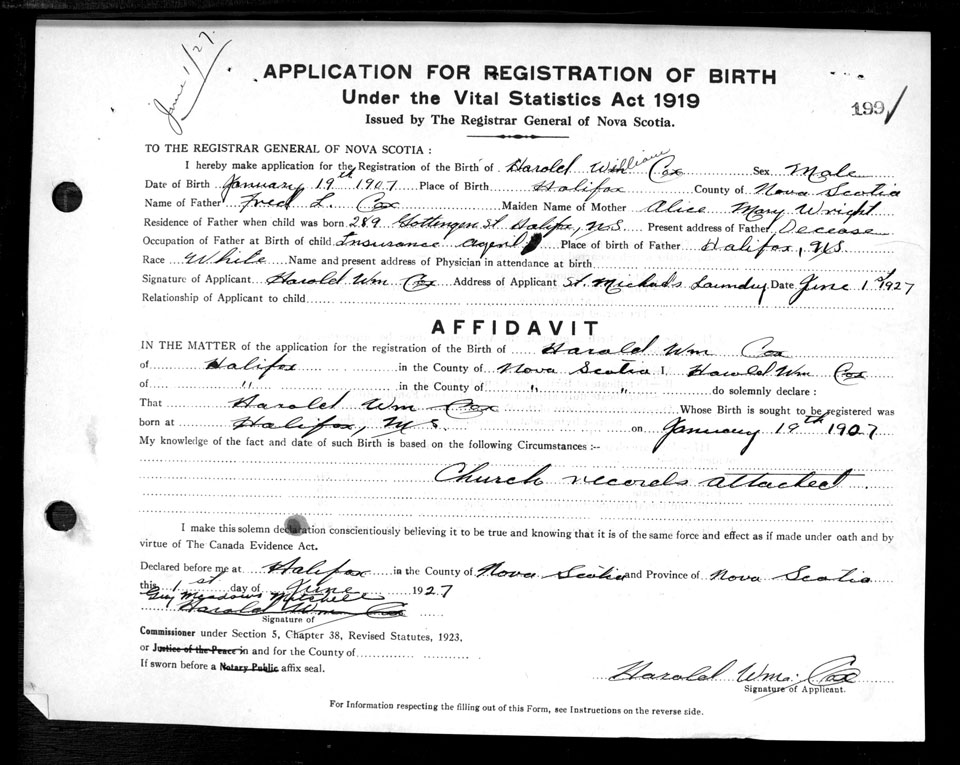 June 1/27.
APPLICATION FOR REGISTRATION OF BIRTH
Under the Vital Statistics Act 1919
1991
Issued by The Registrar General of Nova Scotia.
TO THE REGISTRAR GENERAL OF NOVA SCOTIA :
I hereby make application for the Registration of the Birth of Harold William Cox Sex Male
Date of Birth January 19th 1907 Place of Birth Halifax County of Nova Scotia
Name of Father Fred L. Cox Maiden Name of Mother Alice Mary Wright
Residence of Father when child was born 289 Gottengen St. Halifax, N.S. Present address of Father Decease
Occupation of Father at Birth of child Insurance agent Place of birth of Father Halifax, N.S
Race White Name and present address of Physician in attendance at birth
Signature of Applicant Harold Wm Cox Address of Applicant St. Michael's Laundry Date June 1st 1927
Relationship of Applicant to child
AFFIDAVIT
IN THE MATTER of the application for the registration of the Birth of Harold Wm Cox
of Halifax in the County of Nova Scotia I Harold Wm Cox
of " in the County of " " do solemnly declare :
That Harold Wm Cox Whose Birth is sought to be registered was
born at Halifax, N S. on January 19th 1907
My knowledge of the fact and date of such Birth is based on the following Circumstances :--
Church records attached.
I make this solemn declaration conscientiously believing it to be true and knowing that it is of the same force and effect as if made under oath and by
virtue of The Canada Evidence Act.
Declared before me at Halifax in the County of Nova Scotia and Province of Nova Scotia
this 1st day of June 1927
Guy Meadows Mitchell
Harold Wm Cox
Signature of
Commissioner under Section 5, Chapter 38, Revised Statutes, 1923.
or Justice of the Peace in and for the County of
If sworn before a Notary Public affix seal.
Harold Wm: Cox
Signature of Applicant.
For Information respecting the filling out of this Form, see Instructions on the reverse side.